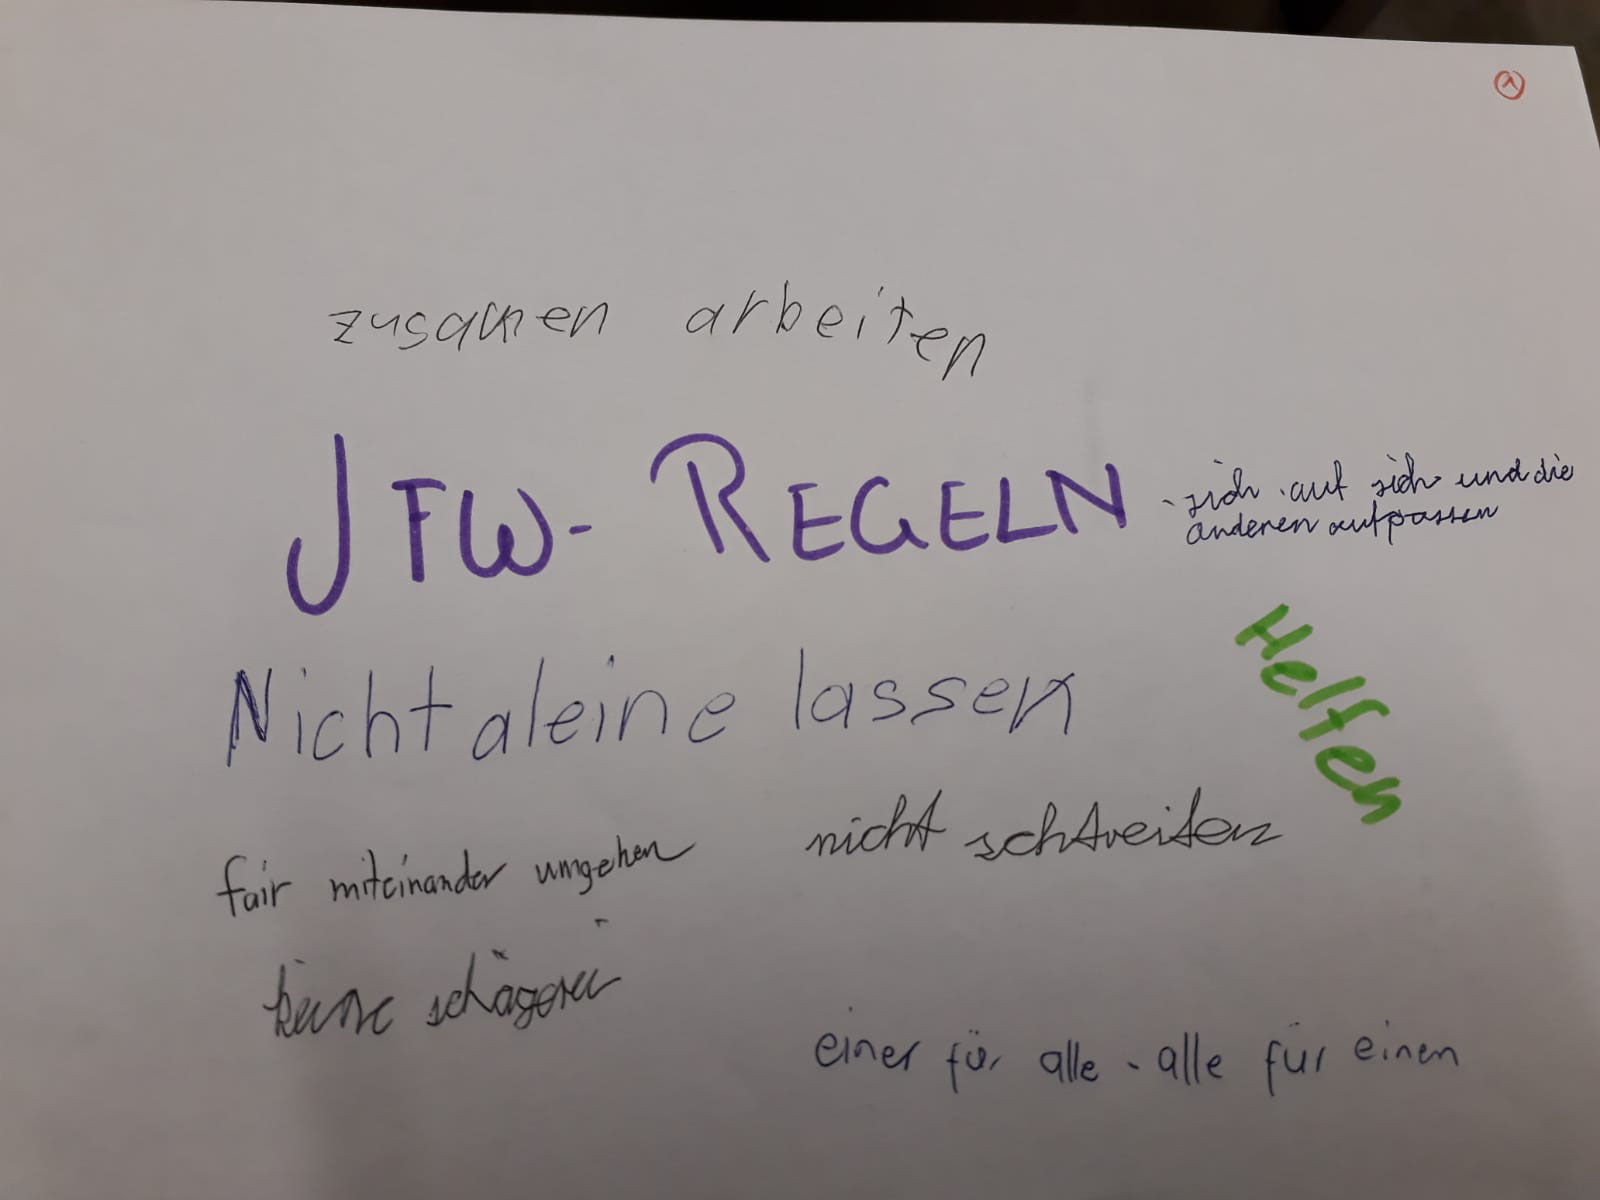 1
zusamen arbeiten
JFW- REGELN
- sich auf sich und die
anderen aufpassen
Helfen
Nicht aleine lassen
fair miteinander umgehen
nicht schtreiten
keine schägerei
einer für alle - alle für einen